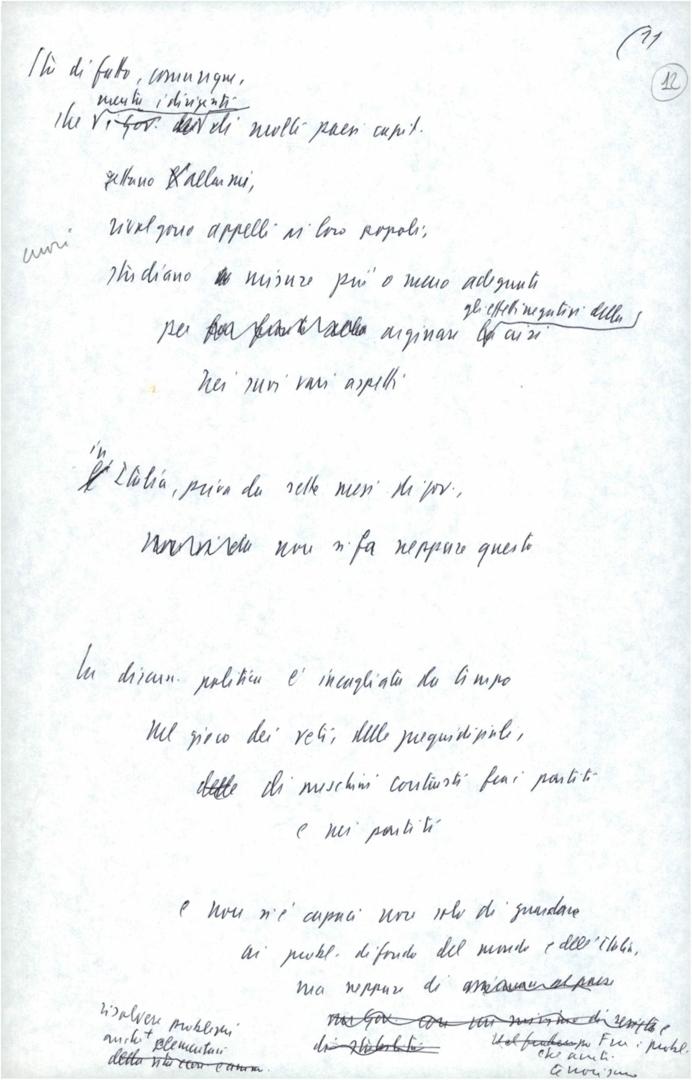 (11
12
Sta di fatto, comunque,
mentre i dirigenti
che i gov. di molti paesi capit.
gettano l'allarmi,
rivolgono appelli ai loro popoli,
studiano misure più o meno adeguate
gli effetti negativi della
per arginare la crisi
nei suoi vari aspetti
in
l'Italia, priva da sette mesi di gov.,
non si fa neppure questo
La discuss. politica è incagliata da tempo
nel gioco dei veti, delle pregiudiziali,
delle di meschini contrasti fra i partiti
e nei partiti
e non si è capaci non solo di guardare
ai probl. di fondo del mondo e dell'Italia,
ma neppure di
risolvere problemi
anche + elementari
della vita con
un gov. con un minimo di
di stabilità
Fra i probl.
che